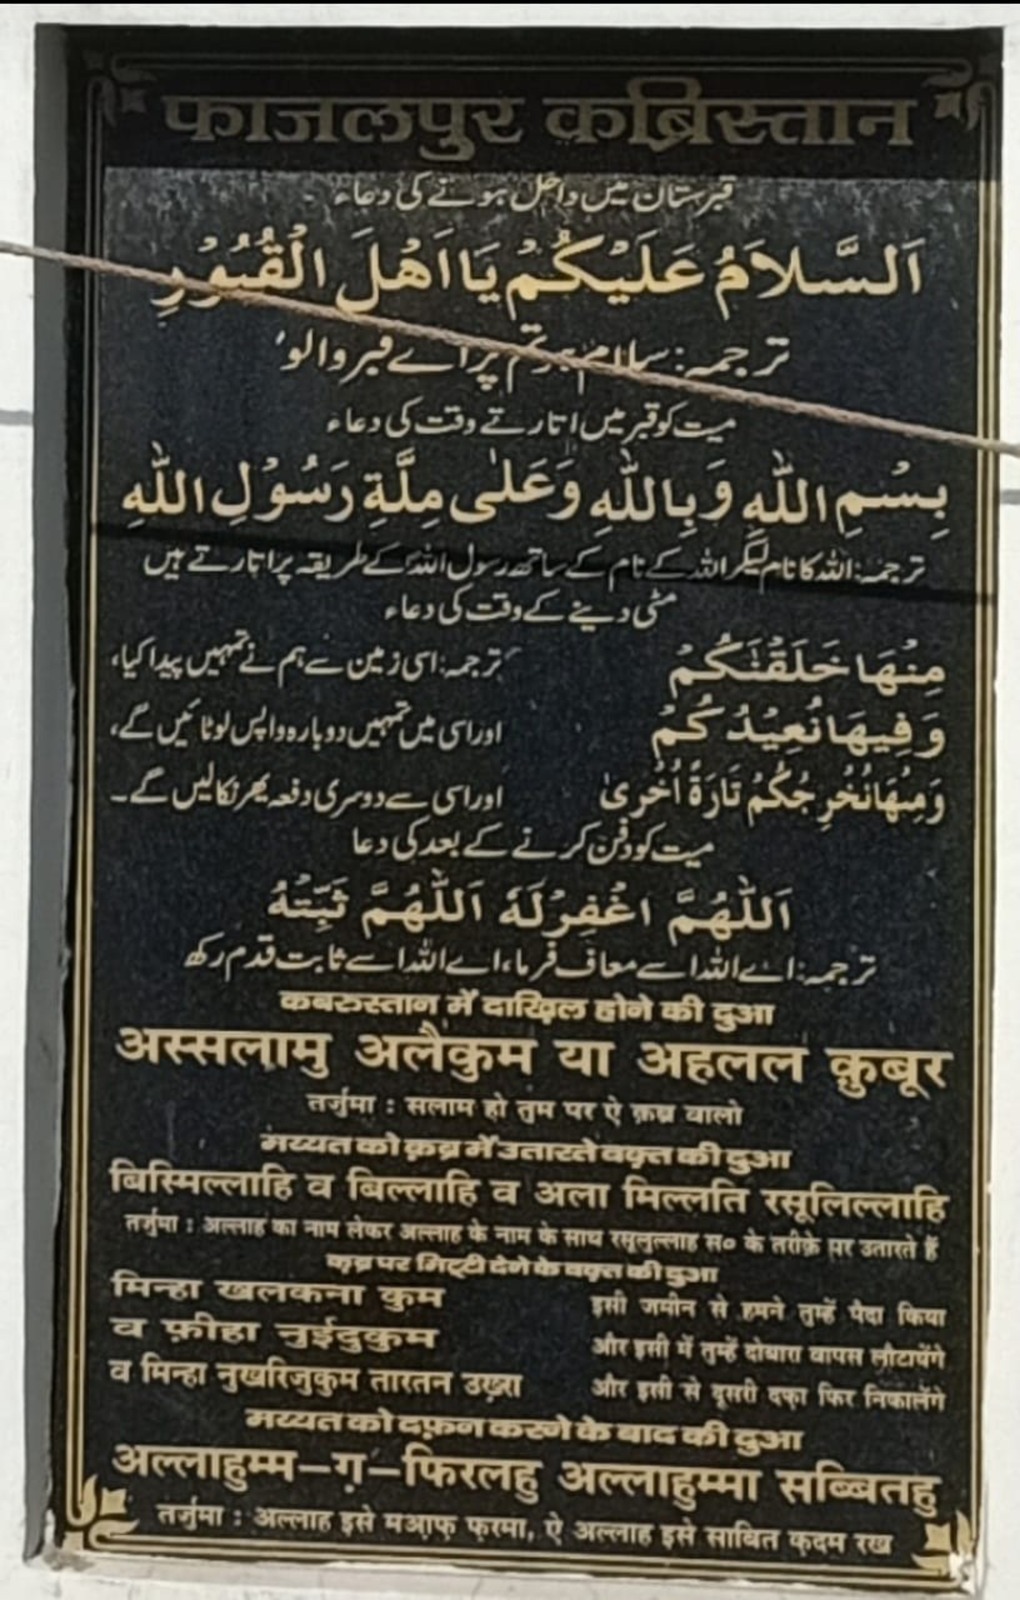 फाजलपुर कब्रिस्तान
قبرستان میں داخل ہونے کی دعاء
اَلسَّلاَمُ عَلَيْكُمْ يَا اَهْلَ الْقُبُوْرِ
ترجمہ: سلام ہو تم پر اے قبر والو
میت کو قبر میں اتارتے وقت کی دعاء
بِسْمِ اللّٰهِ وَبِاللّٰهِ وَعَلٰى مِلَّةِ رَسُوْلِ اللّٰهِ
ترجمہ: اللہ کا نام لیکر اللہ کے نام کے ساتھ رسول اللہ کے طریقہ پر اتارتے ہیں
مٹی دینے کے وقت کی دعاء
مِنْهَا خَلَقْنٰكُمْ ترجمہ: اسی زمین سے ہم نے تمہیں پیدا کیا،
وَفِيهَا نُعِيْدُكُمْ اور اسی میں تمہیں دوبارہ واپس لوٹائیں گے،
وَمِنْهَا نُخْرِجُكُمْ تَارَةً اُخْرىٰ اور اسی سے دوسری دفعہ پھر نکالیں گے۔
میت کو دفن کرنے کے بعد کی دعا
اَللّٰهُمَّ اغْفِرْلَهٗ اَللّٰهُمَّ ثَبِّتْهُ
ترجمہ: اے اللہ اسے معاف فرما، اے اللہ اسے ثابت قدم رکھ
कबरुस्तान में दाखि़ल होने की दुआ
अस्सलामु अलैकुम या अहलल क़ुबूर
तर्जुमा : सलाम हो तुम पर ऐ क़ब्र वालो
मय्यत को क़ब्र में उतारते वक़्त की दुआ
बिस्मिल्लाहि व बिल्लाहि व अला मिल्लति रसूलिल्लाहि
तर्जुमा : अल्लाह का नाम लेकर अल्लाह के नाम के साथ रसूलुल्लाह स० के तरीक़े पर उतारते हैं
क़ब्र पर मिट्टी देने के वक़्त की दुआ
मिन्हा खलकना कुम इसी जमीन से हमने तुम्हें पैदा किया
व फ़ीहा नुईदुकुम और इसी में तुम्हें दोबारा वापस लौटायेंगे
व मिन्हा नुखरिजुकुम तारतन उख़्रा और इसी से दूसरी दफ़ा फिर निकालेंगे
मय्यत को दफ़न करने के बाद की दुआ
अल्लाहुम्म–ग़–फिरलहु अल्लाहुम्मा सब्बितहु
तर्जुमा : अल्लाह इसे मआ़फ़ फ़रमा, ऐ अल्लाह इसे साबित क़दम रख